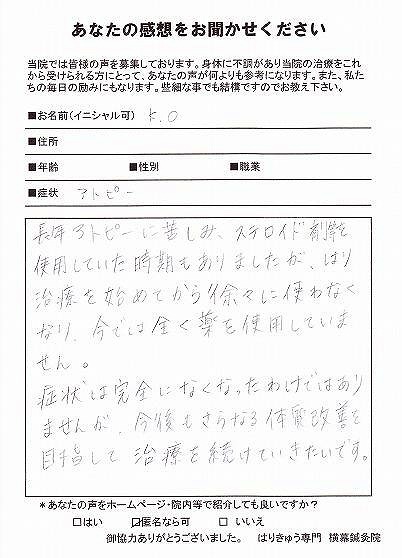 あなたの感想をお聞かせください
当院では皆様の声を募集しております。身体に不調があり当院の治療をこれ
から受けられる方にとって、あなたの声が何よりも参考になります。また、私た
ちの毎日の励みにもなります。些細な事でも結構ですのでお教え下さい。
■お名前(イニシャル可) K.O
■住所
■年齢 ■性別 ■職業
■症状 アトピー
長年アトピーに苦しみ、ステロイド剤等を
使用していた時期もありましたが、はり
治療を始めてから徐々に使わなく
なり、今では全く薬を使用していま
せん。
症状は完全になくなったわけではあり
ませんが、今後もさらなる体質改善を
目指して治療を続けていきたいです。
*あなたの声をホームページ・院内等で紹介しても良いですか?
□はい ☑匿名なら可 □いいえ
御協力ありがとうございました。 はりきゅう専門 横幕鍼灸院